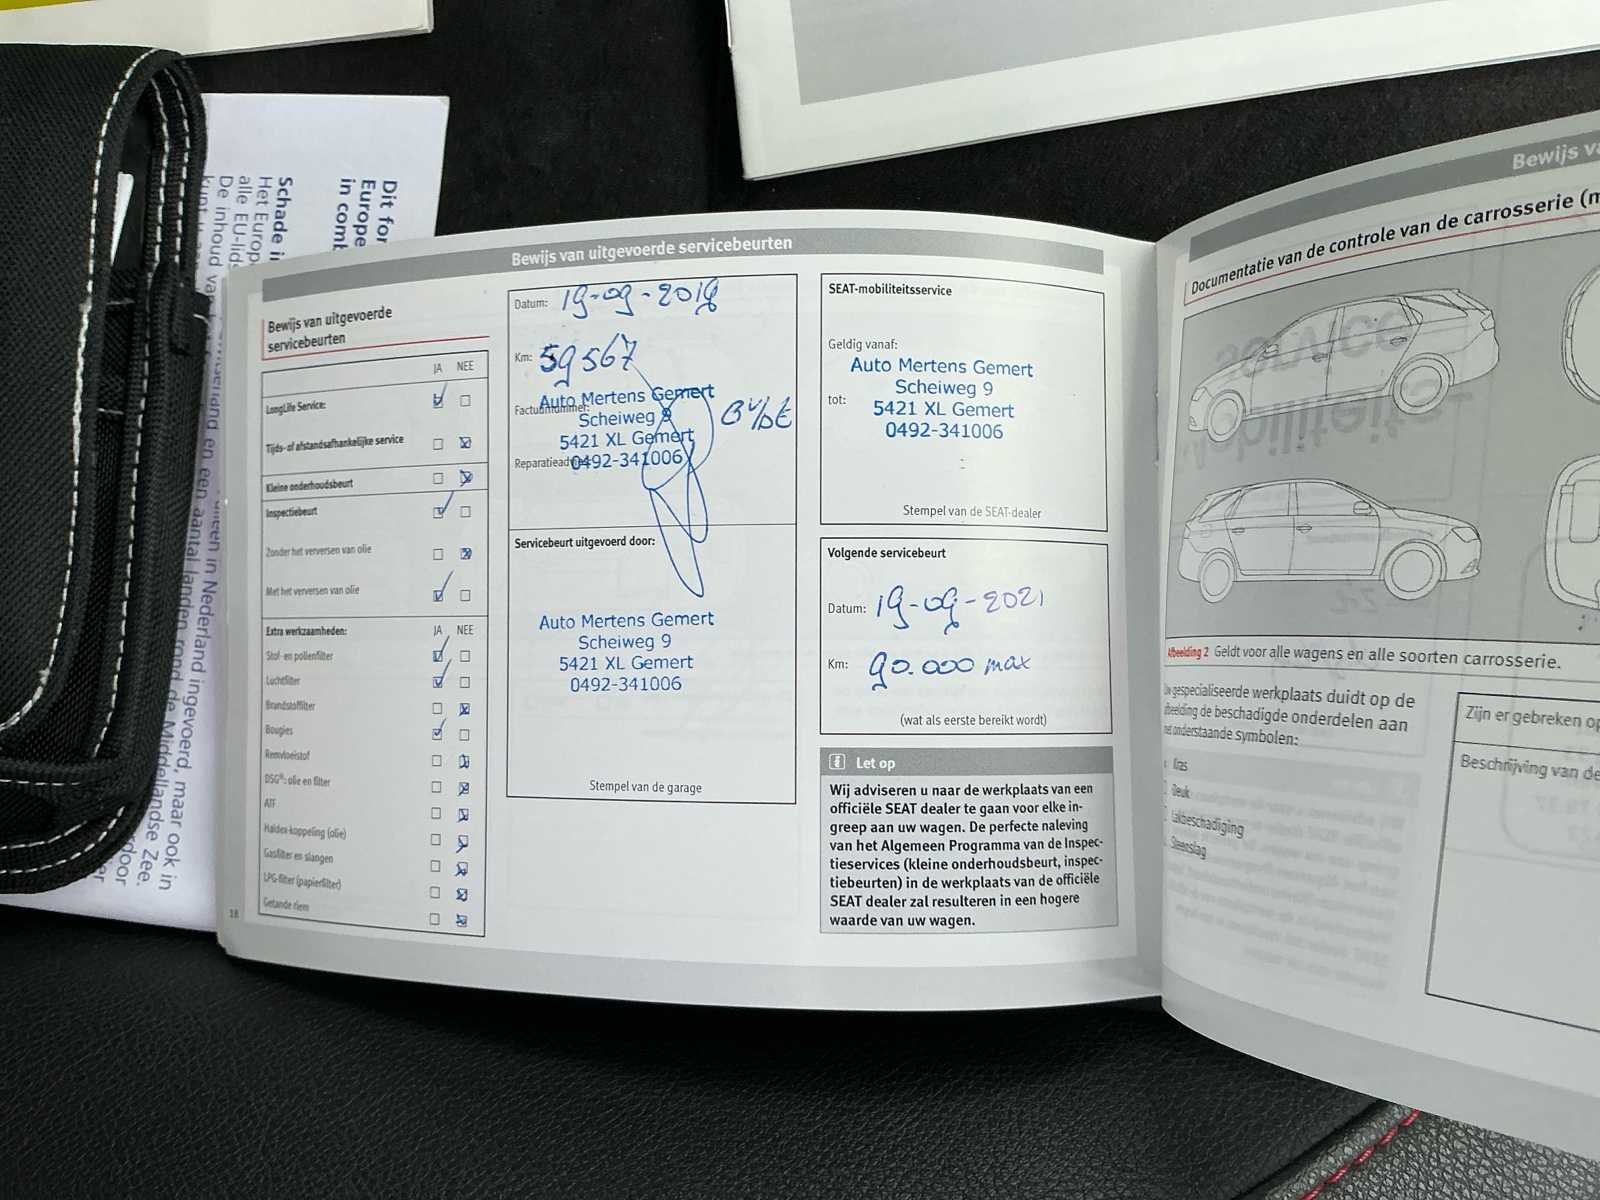 Dit for
Europe
in comb
Schade i
Het Europ
alle EU-lid
De inhoud
alleen in Nederland ingevoerd, maar ook in
en een aantal landen rond de Middellandse Zee.
door
Bewijs van uitgevoerde servicebeurten
Bewijs van uitgevoerde
servicebeurten
JA NEE
LongLife Service:
Tijds- of afstandsafhankelijke service
Kleine onderhoudsbeurt
Inspectiebeurt
Zonder het verversen van olie
Met het verversen van olie
Extra werkzaamheden: JA NEE
Stof- en pollenfilter
Luchtfilter
Brandstoffilter
Bougies
Remvloeistof
DSG®: olie en filter
ATF
Haldex-koppeling (olie)
Gasfilter en slangen
LPG-filter (papierfilter)
Getande riem
18
Datum: 19-09-2019
Km: 59567
Factuurnummer:
Auto Mertens Gemert
Scheiweg 9
5421 XL Gemert
0492-341006
Servicebeurt uitgevoerd door:
Auto Mertens Gemert
Scheiweg 9
5421 XL Gemert
0492-341006
Stempel van de garage
SEAT-mobiliteitsservice
Geldig vanaf:
Auto Mertens Gemert
Scheiweg 9
tot: 5421 XL Gemert
0492-341006
Stempel van de SEAT-dealer
Volgende servicebeurt
Datum: 19-09-2021
Km: 90.000 max
(wat als eerste bereikt wordt)
Let op
Wij adviseren u naar de werkplaats van een
officiële SEAT dealer te gaan voor elke in-
greep aan uw wagen. De perfecte naleving
van het Algemeen Programma van de Inspec-
tieservices (kleine onderhoudsbeurt, inspec-
tiebeurten) in de werkplaats van de officiële
SEAT dealer zal resulteren in een hogere
waarde van uw wagen.
Bewijs va
Documentatie van de controle van de carrosserie (m
Afbeelding 2 Geldt voor alle wagens en alle soorten carrosserie.
Uw gespecialiseerde werkplaats duidt op de
afbeelding de beschadigde onderdelen aan
met onderstaande symbolen:
Kras
Deuk
Lakbeschadiging
Steenslag
Zijn er gebreken op
Beschrijving van de